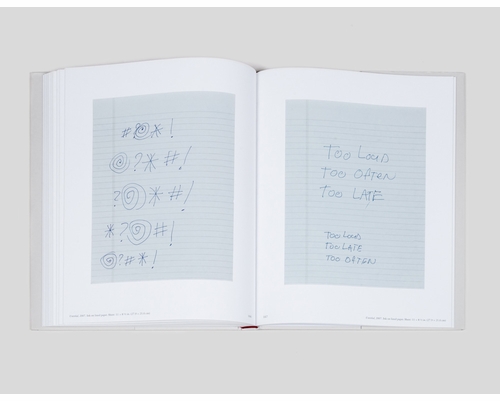 #?@*!
@?*#!
?@*#!
*?@#!
@?#*!
TOO LOUD
TOO OFTEN
TOO LATE
TOO LOUD
TOO LATE
TOO OFTEN